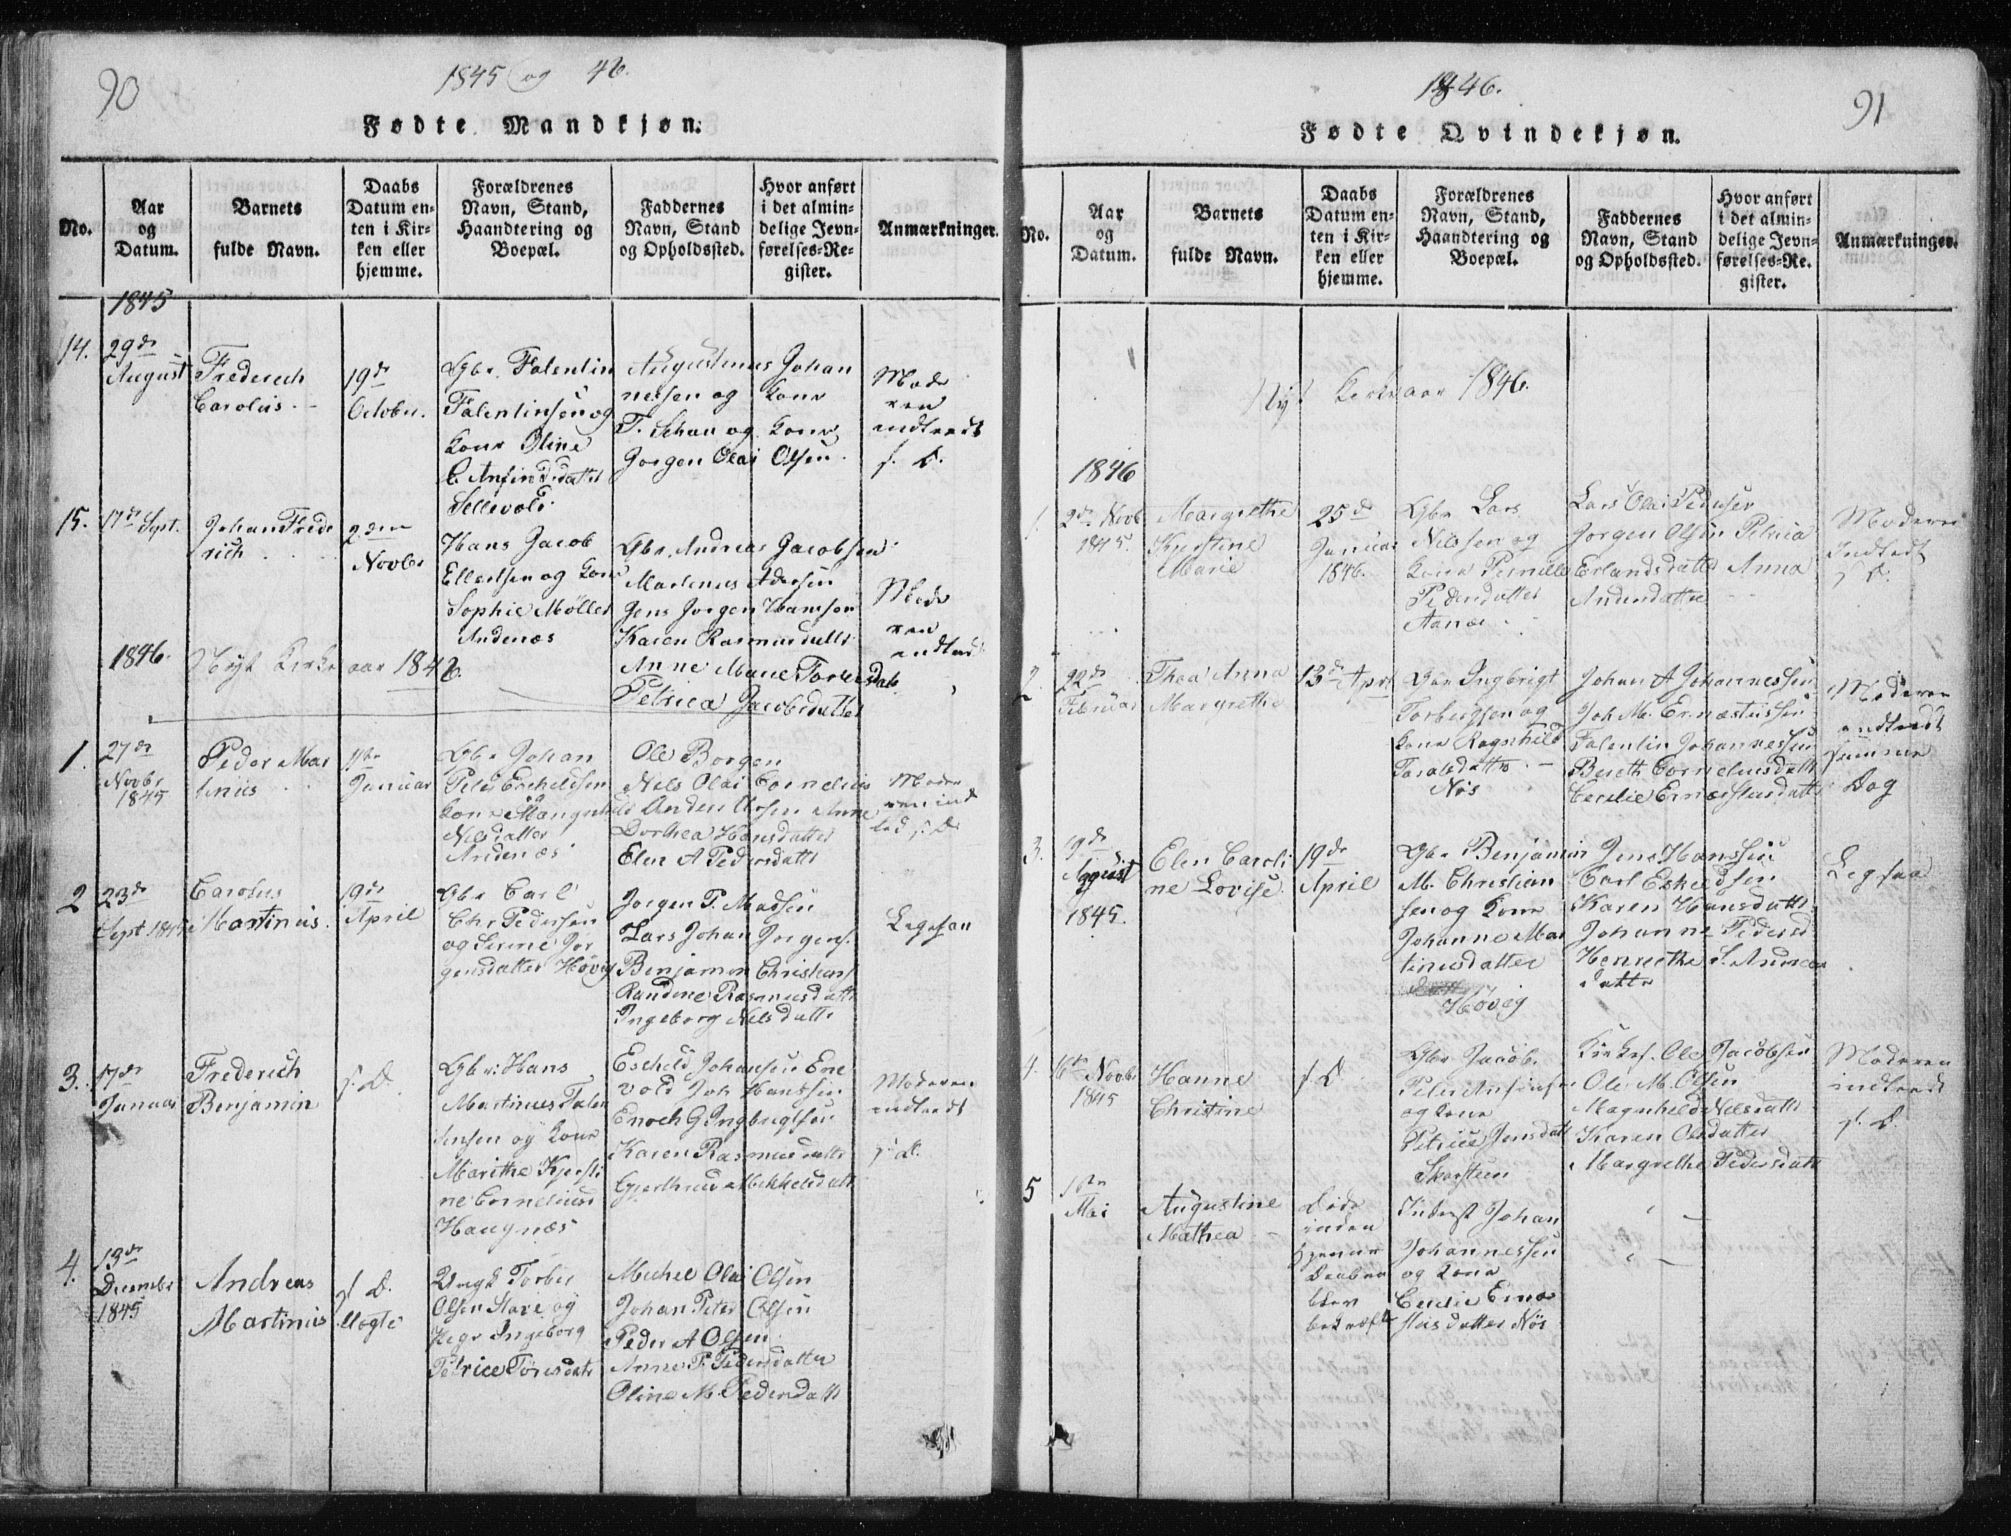 90
1845 og 46.
Fødte Mandkjøn.
No.
Aar
og
Datum.
Barnets
fulde Navn.
Daabs
Datum en-
ten i Kir-
ken eller
hjemme.
Forældrenes
Navn, Stand,
Haandtering og
Boepæl.
Faddernes
Navn, Stand
og Opholdssted.
Hvor anført
i det almin-
delige Jevn-
førelses-Re-
gister.
Anmærkninger.
1845
14.
29de
August
Frederich
Carolus.
19de
October.
Gbr. Falentin
Falentinsen og
Kone Oline
C. Anfindsdatter
Sellevold.
Augustinus Johan
nessen og Kone
T. Schau og Kone
Jørgen Olai Olsen
Mode
ren
indtraadt
s. D.
15.
17de Sept.
Johan Frede
rich
2den
Novbr
Hans Jacob
Ellertsen og Kone
Sophie Møller
Andenæs
Gbr. Andreas Jacobsen
Martinus Adersen
Jens Jørgen Hansen
Karen Rasmusdatter
Anne Marie Torresdatt
Petrica Jacobsdatter
Mode
ren
indtradt
1846.
Nyt Kirke aar 1846.
1.
27de
Novbr
1845
Peder Mar
tinus
Januar
Gbr Johan
Peter Escheldsen
Kone Mangnhild
Nelsdatter
Andenæs
Ole Borgen
Nels Olai Cornelius
Anders Olsen Anne
Dorthea Hansdatter
Elen A Pedersdatter
Mode
ren ind
tod s. D.
2
23de
Sept 1845
Carolus
Martinus.
19de
April
Gbr Carl
Chr Pedersen
og Serine Jør
gensdatter Høvig
Jørgen P. Madsen
Lars Johan Jørgens.
Benjamin Christens
Randine Rasmusdatte
Ingeborg Nelsdatte
Legesaa
3.
17de
Januar
Frederich
Benjamin
s. D.
Gbr: Hans
Martinus Falen
tinsen og Kone
Marithe Kjersti
ne Cornelius
Haugnæs
Escheld Johansen Ene
vold Joh Hanssen
Enoch G Ingbrigtsen
Karen Rasmusdatte
Gjerthrud Mekkelsdatt
Moderen
indtraadt
s. D.
4.
13de
Decembr
1845
Andreas
Martinus
s. D.
Uægte
Ungk Torber
Olsen Stave og
Pige Ingeborg
Petrice Tøresdatt
Mechel Olai Olsen
Johan Peter Olsen
Peder A Olsen
Anne P. Pedersdatter
Oline M. Pedersdatte
1846.
91
Fødte Qvindekjøn.
No.
Aar
og
Datum.
Barnets
fulde Navn.
Daabs
Datum en-
ten i Kir-
ken eller
hjemme.
Forældrenes
Navn, Stand,
Haandtering og
Boepæl.
Faddernes
Navn, Stand
og Opholdssted.
Hvor anført
i det almin-
delige Jevn-
førelses-Re-
gister.
Anmærkninger.
Nyt Kirkeaar 1846.
1846
1.
2de Novb
1845.
Margrethe
Kjerstine
Marie
25de
Januar
1846.
Gbr Lars
Nelssen og
Kone Pernille
Pedersdatter
Aanæs
Lars Olai Pedersen
Jørgen Olsen Petrica
Erlandsdatte Anna
Andersdatter
Moderen
Indtradt
s. D.
2
22de
Februar
Thea Anna
Margrethe
13de April
Gbr Ingbrigt
Torbergsen og
Kone Ragnhild
Taraldsdatte
Nøs
Johan A Johannessen
Joh M. Ernæstussen
Falentin Johannessen
Bereth Cornelusdatt
Cecilie Ernæstusdatt
Moderen
indtraadt
samme
Dag
3.
19de
August
1845.
Elen Caroli
ne Lovise
19de
April
Gbr Benjamin
M. Christian
sen og Kone
Johanne Mar
tinusdatter
Høvig
Jens Hanssen
Carl Eskeldsen
Karen Hansdatte
Johanne Pedersd
Henriethe S. Andreas
datte
Legsaa
4.
16de Novbr
1845
Hanne
Christine
s D
Gbr Jacob
Peter Anfinsen
og Kone
Petrice Jensdatt
Skarsteen
Kirkes. Ole Jacobsen
Ole M. Olsen
Magnheld Nelsdatte
Karen Olsdatter
Margrethe Pedersdatt
Moderen
indtraadt
s. D.
5
10de
Mai
Augustine
Mathea
Døde
inden
hjemme
Daaben
blev
bekræft
Johan
Johannessen
og Kone
Cecilie Ernæ
stusdatter Nøs